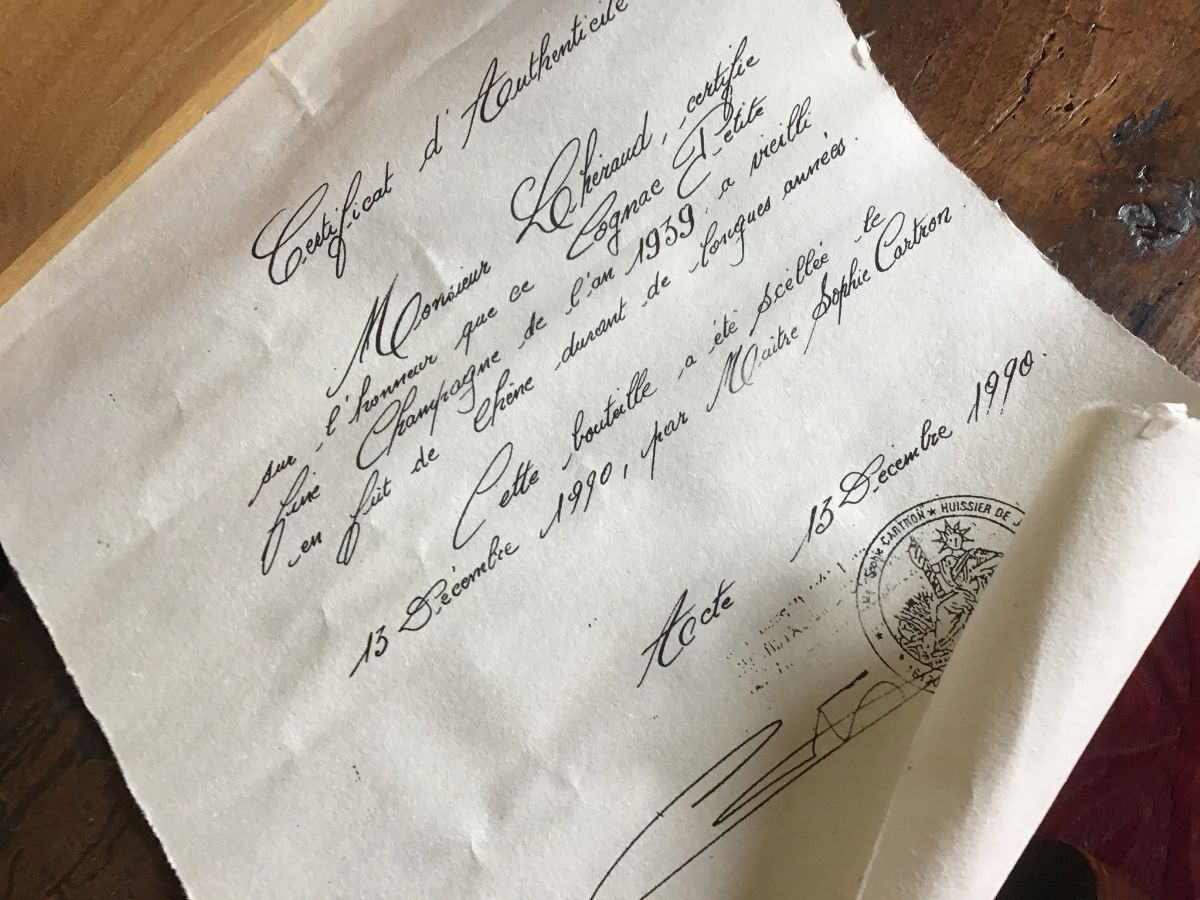 Certificat d'Authenticité
Monsieur Lhéraud, certifie
sur l'honneur que ce Cognac Petite
fine Champagne de l'an 1939, a vieilli
en fût de chêne durant de longues années.
Cette bouteille a été scellée le
13 Décembre 1990, par Maître Sophie Cartron.
Acte 13 Décembre 1990.
Sophie CARTRON ★ HUISSIER DE J